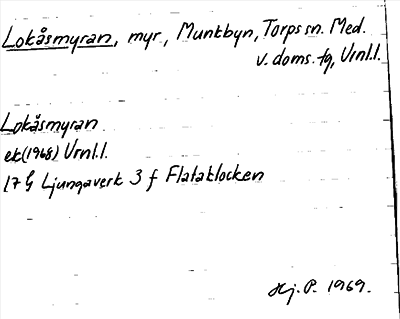 Lokåsmyran, myr, Munkbyn, Torps sn. Med.
v. doms. fg, Vrnl.l.
Lokåsmyran
ek (1968) Vrnl.l.
17 G Ljungaverk 3 f Flataklocken
Hj. P. 1969.